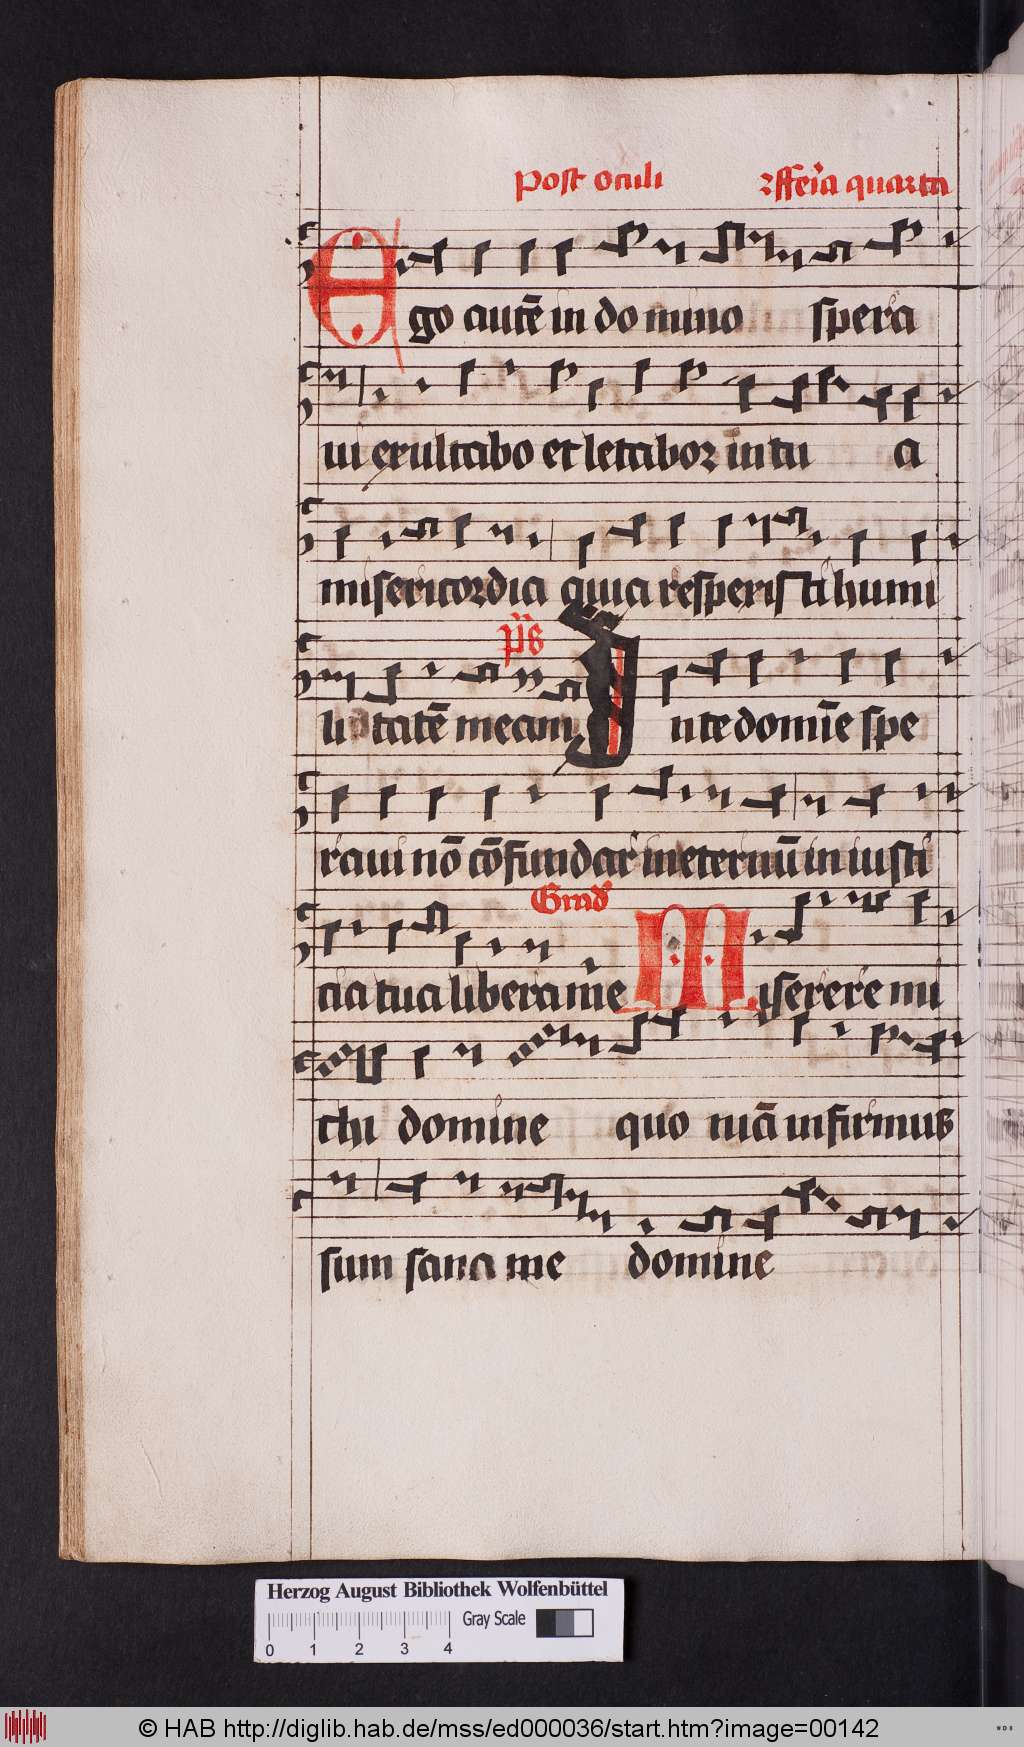 Post oculi ꝛ ffeīa quarta
Ego autē in domino spera
ui exultabo et letabor in tu a
misericordia quia respexisti humi
ps
li tatē meam In te domīe spe
raui nō cōfundar in eternū in iusti
Grad
cia tua libera me Miserere mi
chi domine quo niā infirmus
sum sana me domine
Herzog August Bibliothek Wolfenbüttel
Gray Scale
0 1 2 3 4
© HAB http://diglib.hab.de/mss/ed000036/start.htm?image=00142